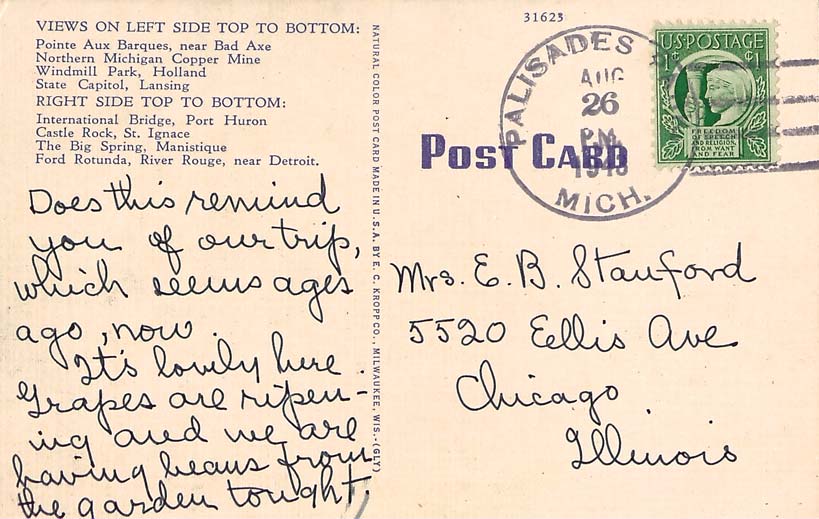 VIEWS ON LEFT SIDE TOP TO BOTTOM:
Pointe Aux Barques, near Bad Axe
Northern Michigan Copper Mine
Windmill Park, Holland
State Capitol, Lansing
RIGHT SIDE TOP TO BOTTOM:
International Bridge, Port Huron
Castle Rock, St. Ignace
The Big Spring, Manistique
Ford Rotunda, River Rouge, near Detroit.
Does this remind
you of our trip,
which seems ages
ago, now.
It's lovely here.
Grapes are ripen-
ing and we are
having beans from
the garden tonight.
NATURAL COLOR POST CARD MADE IN U.S.A. BY E. C. KROPP CO., MILWAUKEE, WIS.-(GLY)
31623
POST CARD
PALISADES
AUG
26
PM
MICH.
U.S. POSTAGE
1¢ 1¢
FREEDOM
OF SPEECH
AND RELIGION,
FROM WANT
AND FEAR
Mrs. E. B. Stanford
5520 Eellis Ave
Chicago
Illinois